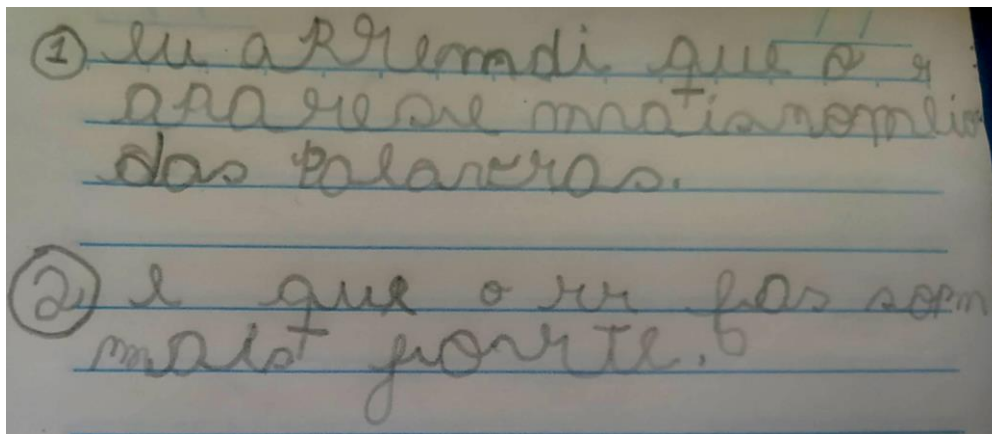 ① eu aRRemdi que o r
aparese mais nomeio
das Palavras.
② e que o rr fas som
mais forte.